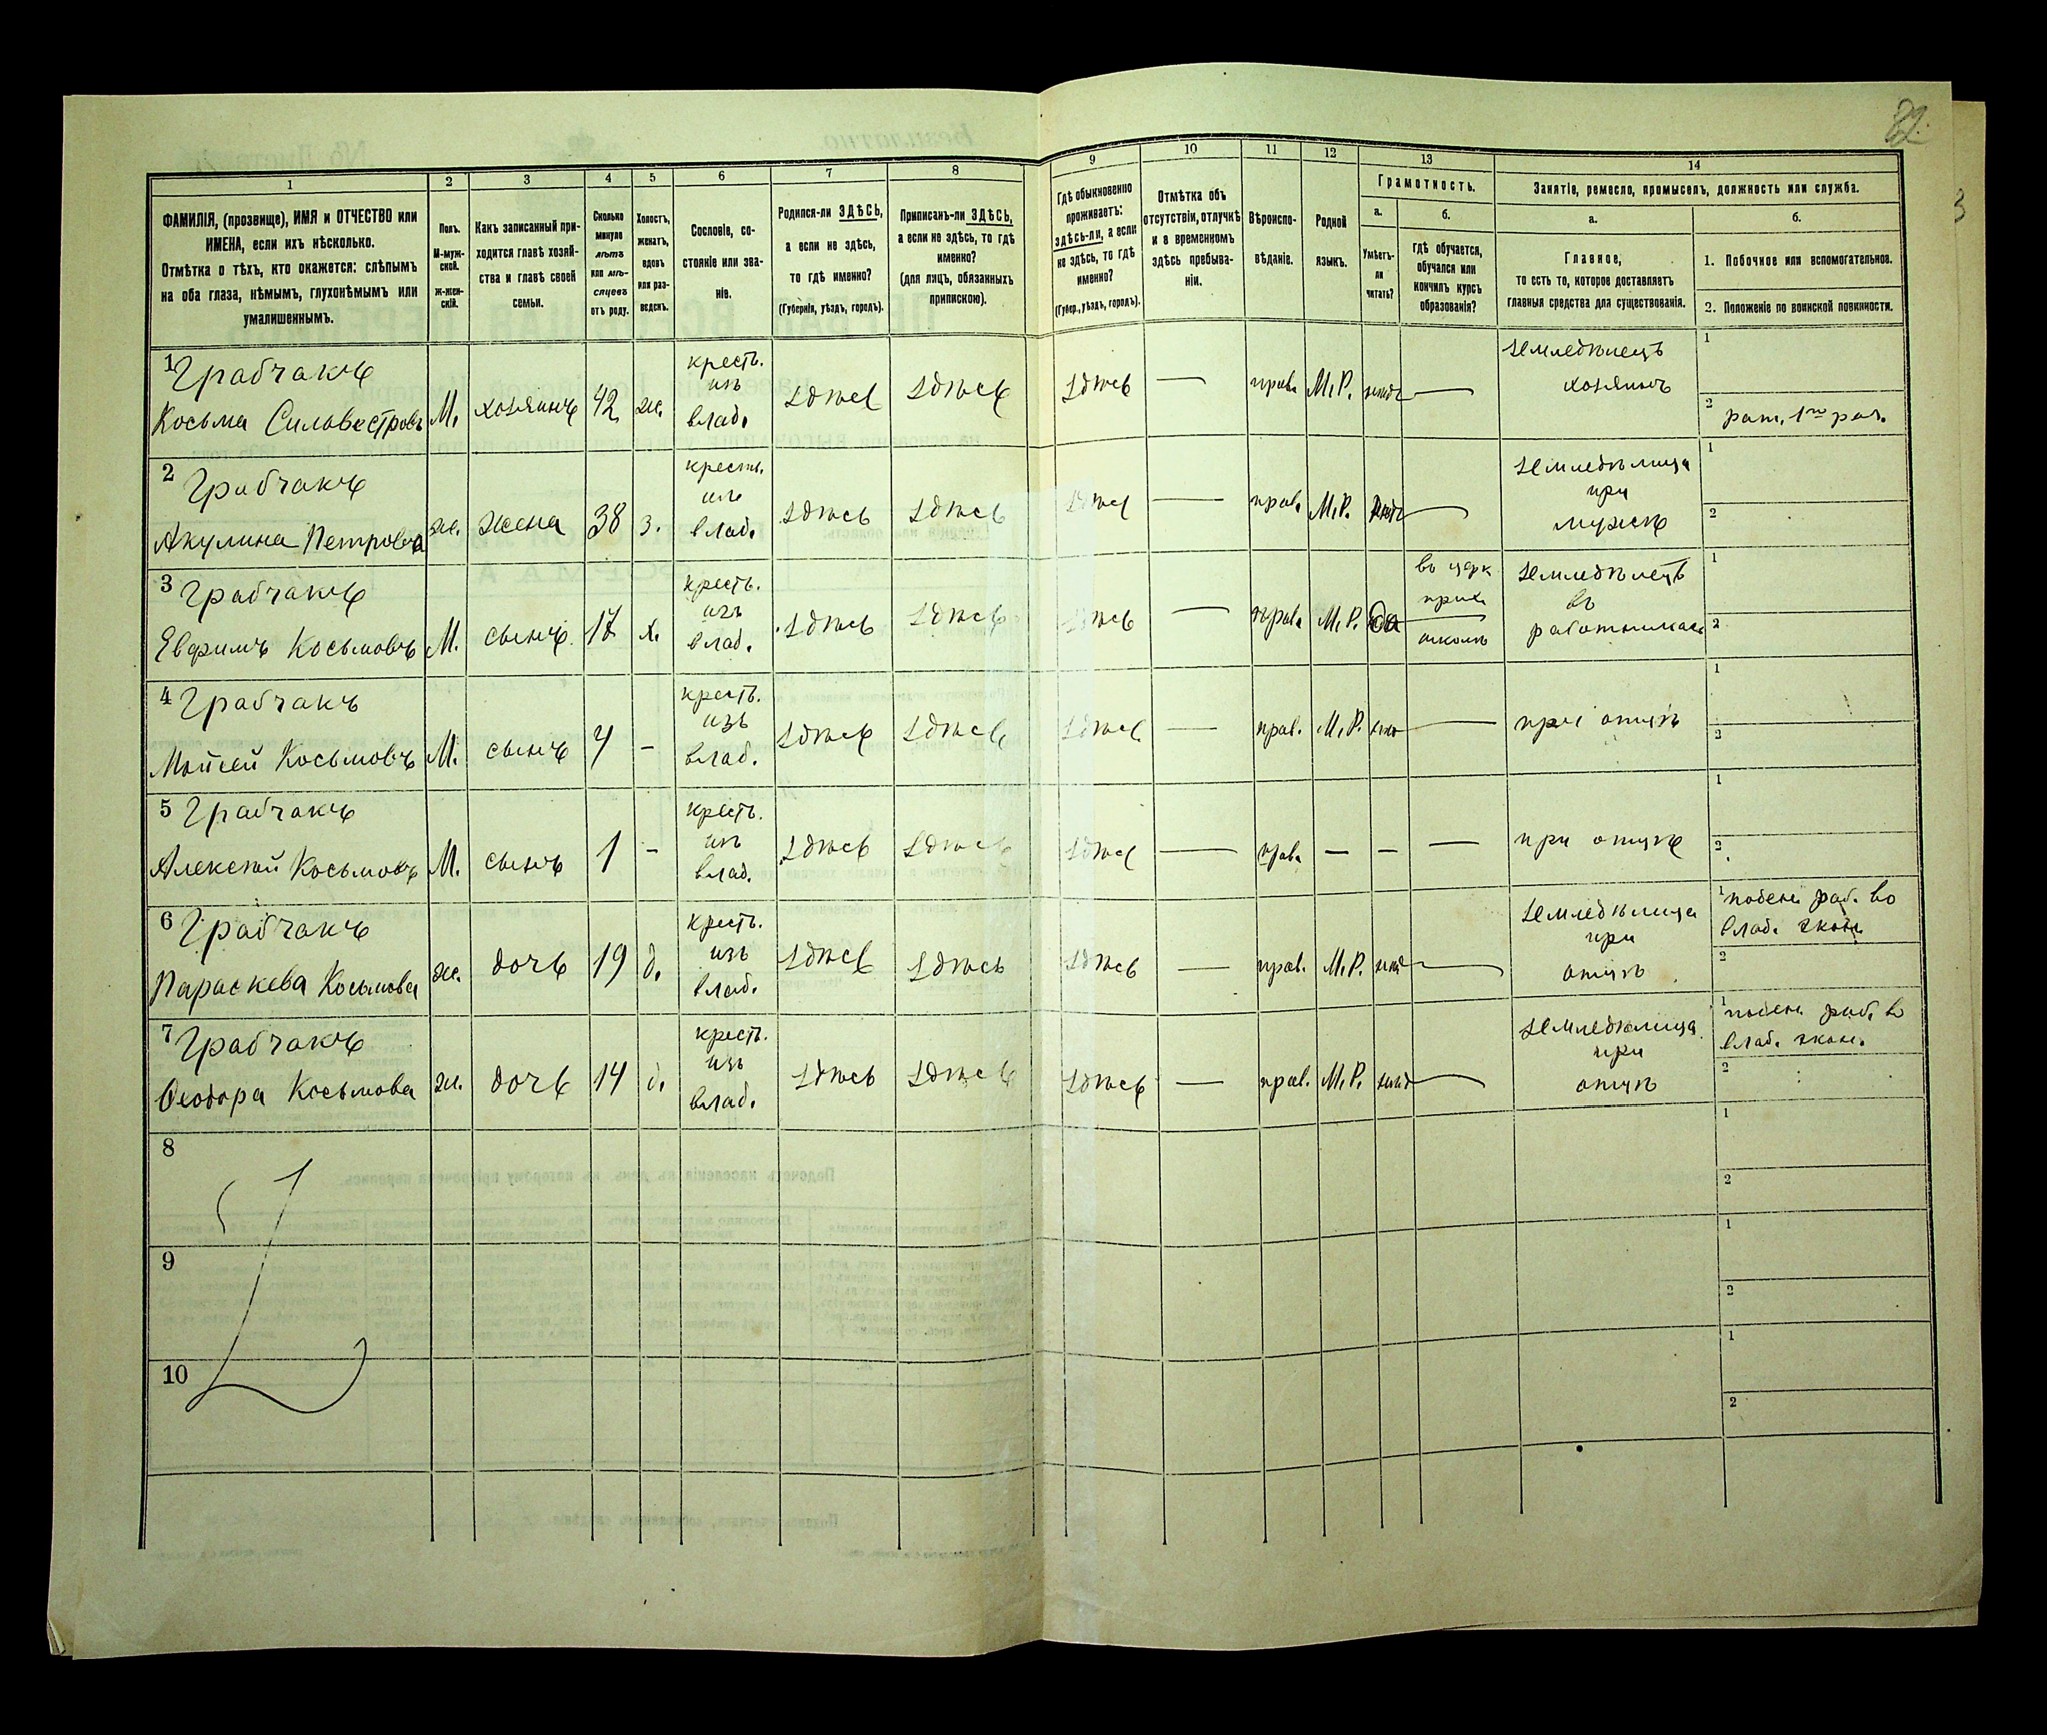 82.
1 2 3 4 5 6 7 8 9 10 11 12 13 14
ФАМИЛІЯ, (прозвище), ИМЯ и ОТЧЕСТВО или
ИМЕНА, если ихъ нѣсколько.
Отмѣтка о тѣхъ, кто окажется: слѣпымъ
на оба глаза, нѣмымъ, глухонѣмымъ или
умалишеннымъ.
Полъ.
М-муж-
ской.
Ж-жен-
скій.
Какъ записанный при-
ходится главѣ хозяй-
ства и главѣ своей
семьи.
Сколько
минуло
лѣтъ
или мѣ-
сяцевъ
отъ роду.
Холостъ,
женатъ,
вдовъ
или раз-
веденъ.
Сословіе, со-
стояніе или зва-
ніе.
Родился-ли ЗДѢСЬ,
а если не здѣсь,
то гдѣ именно?
(Губернія, уѣздъ, городъ).
Приписанъ-ли ЗДѢСЬ,
а если не здѣсь, то гдѣ
именно?
(для лицъ, обязанныхъ
припискою).
Гдѣ обыкновенно
проживаетъ:
здѣсь-ли, а если
не здѣсь, то гдѣ
именно?
(Губер., уѣздъ, городъ).
Отмѣтка объ
отсутствіи, отлучкѣ
и о временномъ
здѣсь пребыва-
ніи.
Вѣроиспо-
вѣданіе.
Родной
языкъ.
Грамотность.
а.
Умѣетъ-
ли
читать?
б.
Гдѣ обучается,
обучался или
кончилъ курсъ
образованія?
Занятіе, ремесло, промыселъ, должность или служба.
а.
Главное,
то есть то, которое доставляетъ
главныя средства для существованія.
б.
1. Побочное или вспомогательное.
2. Положеніе по воинской повинности.
1 Грабчакъ
Косьма Сильвестровъ М. хозяинъ 42 ж. крестъ. изъ влад. здѣсь здѣсь здѣсь — прав. М.Р. — земледѣлецъ хозяинъ
1
2 рат. 1го раз.
2 Грабчакъ
Акулина Петрова ж. жена 38 з. крестъ. изъ влад. здѣсь здѣсь здѣсь — прав. М.Р. — земледѣлица при мужѣ
1
2
3 Грабчакъ
Евфимъ Косьмовъ М. сынъ 17 х. крестъ. изъ влад. здѣсь здѣсь здѣсь — прав. М.Р. да въ церк. прих. школѣ земледѣлецъ въ работникахъ
1
2
4 Грабчакъ
Мойсей Косьмовъ М. сынъ 7 - крестъ. изъ влад. здѣсь здѣсь здѣсь — прав. М.Р. — при отцѣ
1
2
5 Грабчакъ
Алексѣй Косьмовъ М. сынъ 1 - крестъ. изъ влад. здѣсь здѣсь здѣсь — прав. — — — при отцѣ
1
2
6 Грабчакъ
Параскева Косьмова ж. дочь 19 д. крестъ. изъ влад. здѣсь здѣсь здѣсь — прав. М.Р. — земледѣлица при отцѣ
1 поден. раб. во влад. экон.
2
7 Грабчакъ
Ѳеодора Косьмова ж. дочь 14 д. крестъ. изъ влад. здѣсь здѣсь здѣсь — прав. М.Р. — земледѣлица при отцѣ
1 поден. раб. во влад. экон.
2
8
1
2
9
1
2
10
1
2